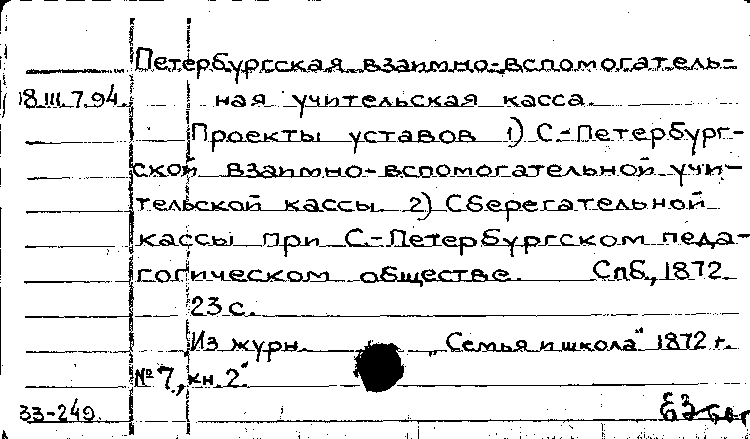 Петербургская взаимно-вспомогатель=
18.III.7.94. ная учительская касса.
Проекты уставов 1) С.-Петербург-
ской взаимно-вспомогательной учи-
тельской кассы. 2) Сберегательной
кассы при С.-Петербургском педа-
гогическом обществе. Спб., 1872.
23 с.
Из журн. "Семья и школа" 1872 г.
№ 7, кн. 2.
33-249.